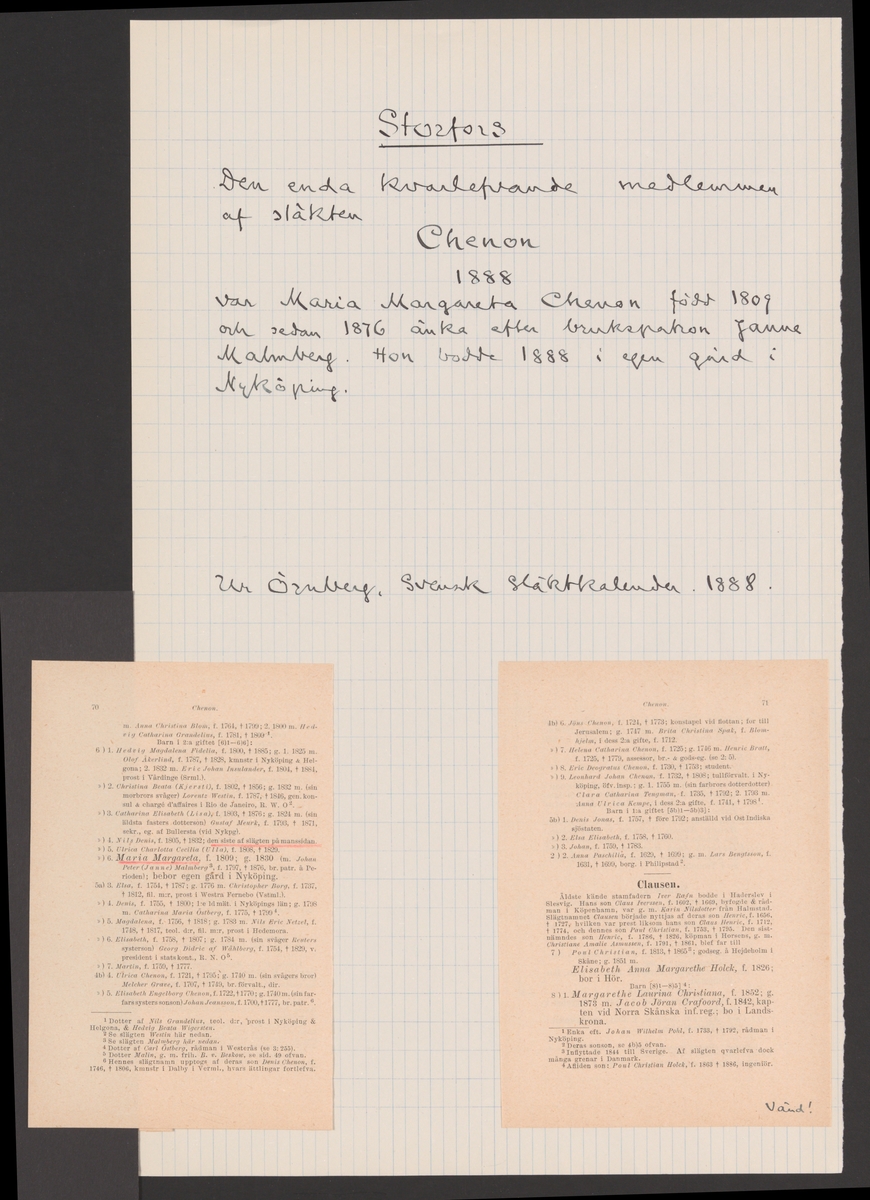 Storfors
Den enda kvarlefvande medlemmen
af släkten
Chenon
1888
var Maria Margareta Chenon född 1809
och sedan 1876 änka efter brukspatron Janne
Malmberg. Hon bodde 1888 i egen gård i
Nyköping.
Ur Örnberg, Svensk Släktkalender. 1888.
70 Chenon.
m. Anna Christina Blom, f. 1764, † 1799; 2. 1800 m. Hed-
vig Catharina Grandelius, f. 1781, † 1860 1.
Barn i 2:a giftet [6)1—6)6]:
6 ) 1. Hedvig Magdalena Fidelia, f. 1800, † 1885; g. 1. 1825 m.
Olof Åkerlind, f. 1787, † 1828, kmnstr i Nyköping & Hel-
gona; 2. 1832 m. Eric Johan Insulander, f. 1804, † 1884,
prost i Vårdinge (Srml.).
» ) 2. Christina Beata (Kjersti), f. 1802, † 1856; g. 1832 m. (sin
morbrors svåger) Lorentz Westin, f. 1787, † 1846, gen.kon-
sul & chargé d'affaires i Rio de Janeiro, R. W. O 2.
» ) 3. Catharina Elisabeth (Lisa), f. 1803, † 1876; g. 1824 m. (sin
äldsta fasters dotterson) Gustaf Meurk, f. 1793, † 1871,
sekr., eg. af Bullersta (vid Nykpg).
» ) 4. Nils Denis, f. 1805, † 1832; den siste af slägten på manssidan.
» ) 5. Ulrica Charlotta Cecilia (Ulla), f. 1808, † 1829.
» ) 6. Maria Margareta, f. 1809; g. 1830 (m. Johan
Peter (Janne) Malmberg 3, f. 1797, † 1876, br. patr. å Pe-
rioden); bebor egen gård i Nyköping.
5a) 3. Elsa, f. 1754, † 1787; g. 1776 m. Christopher Borg, f. 1737,
† 1812, fil. m:r, prost i Westra Fernebo (Vstml.).
» ) 4. Denis, f. 1755, † 1800; 1:e ldmät. i Nyköpings län; g. 1796
m. Catharina Maria Östberg, f. 1775, † 1799 4.
» ) 5. Magdalena, f. 1756, † 1818; g. 1783 m. Nils Eric Netzel, f.
1748, † 1817, teol. d:r, fil. m:r, prost i Hedemora.
» ) 6. Elisabeth, f. 1758, † 1807; g. 1784 m. (sin svåger Resters
systerson) Georg Didric af Wåhlberg, f. 1754, † 1829, v.
president i statskont., R. N. O 5.
» ) 7. Martin, f. 1759, † 1777.
4b) 4. Ulrica Chenon, f. 1721, † 1795; g. 1740 m. (sin svägers bror)
Melcher Grave, f. 1707, † 1749, br. förvalt., dir.
» ) 5. Elisabeth Engelborg Chenon, f. 1722, † 1770; g. 1740 m. (sin far-
fars systers sonson) Johan Jonæson, f. 1700, † 1777, br. patr. 6.
1 Dotter af Nils Grandelius, teol. d:r, prost i Nyköping &
Helgona, & Hedvig Beata Wigersten.
2 Se slägten Westin här nedan.
3 Se slägten Malmberg här nedan.
4 Dotter af Carl Östberg, rådman i Westerås (se 3: 255).
5 Dotter Malin, g. m. frih. B. v. Beskow, se sid. 49 ofvan.
6 Hennes slägtnamn upptogs af deras son Denis Chenon, f.
1746, † 1806, kmnstr i Dalby i Verml., hvars ättlingar fortlefva.
Chenon. 71
4b) 6. Jöns Chenon, f. 1724, † 1773; konstapel vid flottan; for till
Jerusalem; g. 1747 m. Brita Christina Spak, f. Blom-
hjelm, i dess 2:a gifte, f. 1712.
» ) 7. Helena Catharina Chenon, f. 1725; g. 1746 m. Henric Bratt,
f. 1725, † 1779, assessor, br.- & gods-eg. (se 2: 5).
» ) 8. Eric Deogratus Chenon, f. 1730, † 1753; student.
» ) 9. Leonhard Johan Chenon, f. 1732, † 1808; tullförvalt. i Ny-
köping, öfv. insp.; g. 1. 1755 m. (sin farbrors dotterdotter)
Clara Catharina Tengman, f. 1735, † 1792; 2. 1793 m.
Anna Ulrica Kempe, i dess 2:a gifte, f. 1741, † 1798 1.
Barn i 1:a giftet [5b)1—5b)3]:
5b) 1. Denis Jonas, f. 1757, † före 1792; anställd vid Ost Indiska
sjöstaten.
» ) 2. Elsa Elisabeth, f. 1758, † 1760.
» ) 3. Johan, f. 1759, † 1763.
2 ) 2. Anna Paschilia, f. 1629, † 1699; g. m. Lars Bengtsson, f.
1631, † 1699, borg. i Philipstad 2.
Clausen.
Äldste kände stamfadern Iver Rafn bodde i Haderslev i
Slesvig. Hans son Claus Iversøn, f. 1602, † 1669, byfogde & råd-
man i Köpenhamn, var g. m. Karin Nilsdotter från Halmstad.
Slägtnamnet Clausen började nyttjas af deras son Henric, f. 1656,
† 1727, hvilken var prest liksom hans son Claus Henric, f. 1712,
† 1774, och dennes son Paul Christian, f. 1753, † 1795. Den sist-
nämndes son Henric, f. 1786, † 1826, köpman i Horsens, g. m.
Christiane Amalie Asmussen, f. 1791, † 1861, blef far till
7 ) Poul Christian, f. 1813, † 1865 3; godseg. å Hejdeholm i
Skåne; g. 1851 m.
Elisabeth Anna Margarethe Holck, f. 1826;
bor i Hör.
Barn [8)1—8)5] 4:
8 ) 1. Margarethe Laurina Christiana, f. 1852; g.
1873 m. Jacob Jöran Crafoord, f. 1842, kap-
ten vid Norra Skånska inf.reg.; bo i Lands-
krona.
1 Enka eft. Johan Wilhelm Pohl, f. 1735, † 1792, rådman i
Nyköping.
2 Deras sonson, se 4b)5 ofvan.
3 Inflyttade 1844 till Sverige. Af slägten qvarlefva dock
många grenar i Danmark.
4 Afliden son: Poul Christian Holck, f. 1863 † 1886, ingeniör.
Vänd!